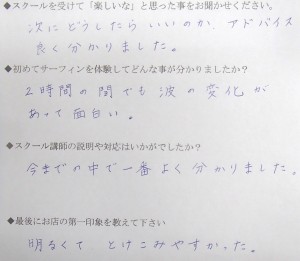 ◆スクールを受けて「楽しいな」と思った事をお聞かせください。
次にどうしたらいいのか、アドバイス
良く分かりました。
◆初めてサーフィンを体験してどんな事が分かりましたか？
2時間の間でも波の変化が
あって面白い。
◆スクール講師の説明や対応はいかがでしたか？
今までの中で一番よく分かりました。
◆最後にお店の第一印象を教えて下さい
明るくて とけこみやすかった。